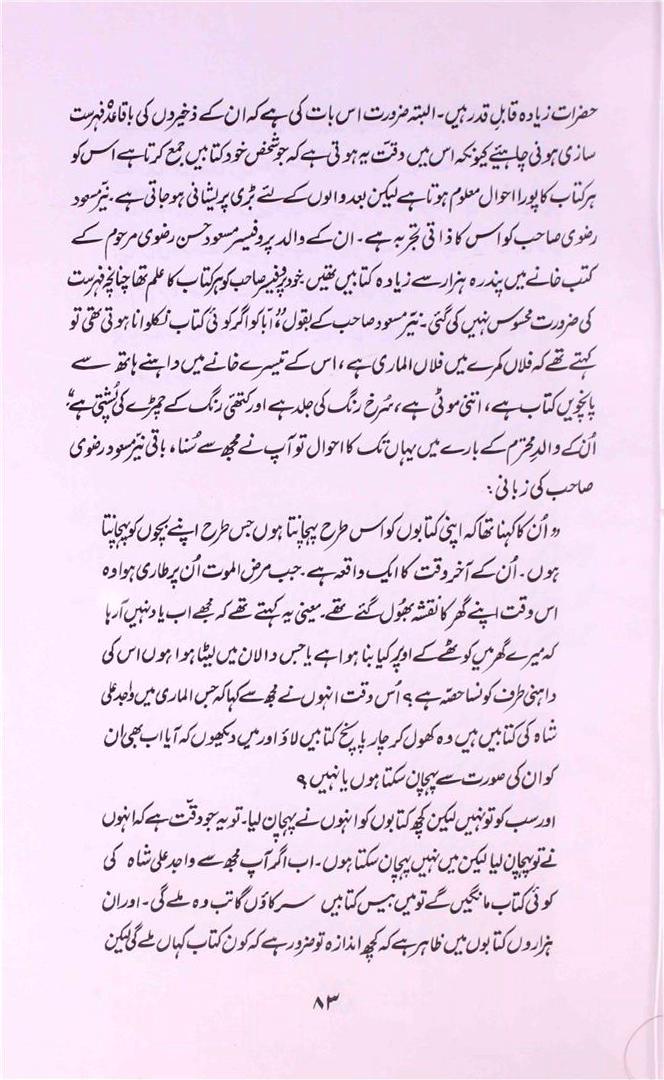 حضرات زیادہ قابلِ قدر ہیں۔ البتہ ضرورت اس بات کی ہے کہ ان کے ذخیروں کی باقاعدہ فہرست
سازی ہونی چاہیئے کیونکہ اس میں دقّت یہ ہوتی ہے کہ جو شخص خود کتابیں جمع کرتا ہے اس کو
ہر کتاب کا پورا احوال معلوم ہوتا ہے لیکن بعد والوں کے لئے بڑی پریشانی ہو جاتی ہے۔ نیّر مسعود
رضوی صاحب کو اس کا ذاتی تجربہ ہے۔ ان کے والد پروفیسر مسعود حسن رضوی مرحوم کے
کتب خانے میں پندرہ ہزار سے زیادہ کتابیں تھیں۔ خود پروفیسر صاحب کو ہر کتاب کا علم تھا چنانچہ فہرست
کی ضرورت محسوس نہیں کی گئی۔ نیّر مسعود صاحب کے بقول، "ابّا کو اگر کوئی کتاب نکلوانا ہوتی تھی تو
کہتے تھے کہ فلاں کمرے میں فلاں الماری ہے، اس کے تیسرے خانے میں داہنے ہاتھ سے
پانچویں کتاب ہے، اتنی موٹی ہے، سُرخ رنگ کی جلد ہے اور کتھئی رنگ کے چمڑے کی پُشتی ہے"۔
اُن کے والدِ محترم کے بارے میں یہاں تک کا احوال تو آپ نے مجھ سے سُنا، باقی نیّر مسعود رضوی
صاحب کی زبانی:
"اُن کا کہنا تھا کہ اپنی کتابوں کو اس طرح پہچانتا ہوں جس طرح اپنے بچّوں کو پہچانتا
ہوں۔ اُن کے آخر وقت کا ایک واقعہ ہے۔ جب مرض الموت اُن پر طاری ہوا وہ
اس وقت اپنے گھر کا نقشہ بھول گئے تھے۔ یعنی یہ کہتے تھے کہ مجھے اب یاد نہیں آ رہا
کہ میرے گھر میں کوٹھے کے اوپر کیا بنا ہوا ہے یا جس دالان میں لیٹا ہوا ہوں اس کی
داہنی طرف کونسا حصّہ ہے؟ اُس وقت انہوں نے مجھ سے کہا کہ جس الماری میں واجد علی
شاہ کی کتابیں ہیں وہ کھول کر چار پانچ کتابیں لاؤ اور میں دیکھوں کہ آیا اب بھی ان
کو ان کی صورت سے پہچان سکتا ہوں یا نہیں؟
اور سب کو تو نہیں لیکن کچھ کتابوں کو انہوں نے پہچان لیا۔ تو یہ جو دقّت ہے کہ انہوں
نے تو پہچان لیا لیکن میں نہیں پہچان سکتا ہوں۔ اب اگر آپ مجھ سے واجد علی شاہ کی
کوئی کتاب مانگیں گے تو میں بیس کتابیں سرکاؤں گا تب وہ ملے گی۔ اور ان
ہزاروں کتابوں میں ظاہر ہے کہ کچھ اندازہ تو ضرور ہے کہ کون کتاب کہاں ملے گی لیکن
۸۳